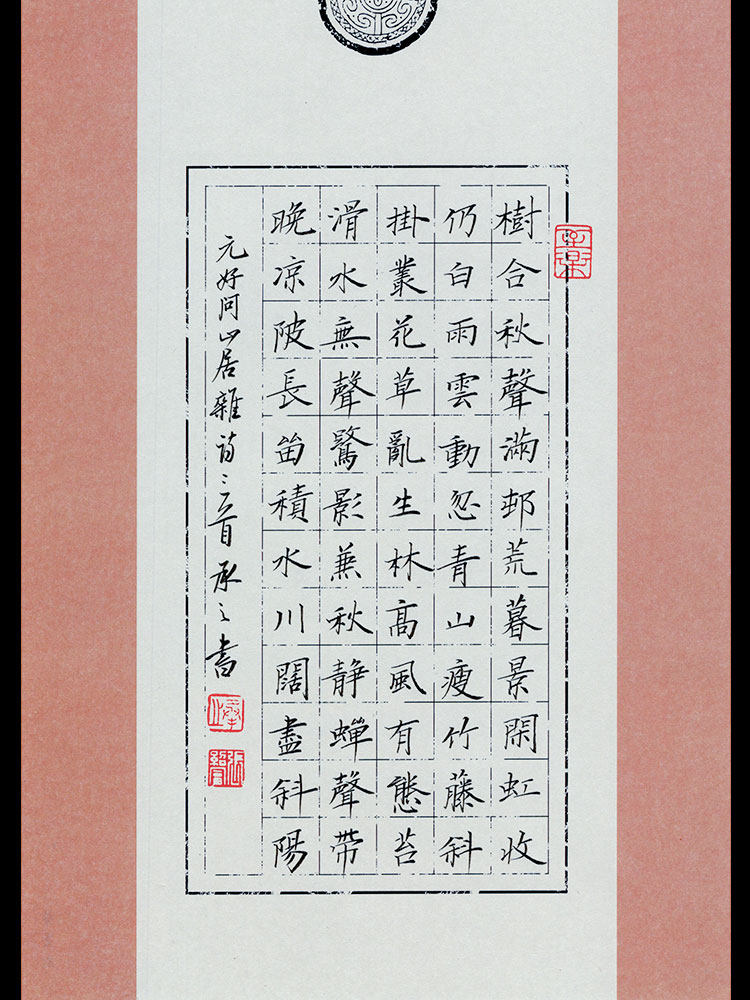 樹合秋聲滿邨荒暮景閑虹收
仍白雨雲動忽青山瘦竹藤斜
掛叢花草亂生林高風有態苔
滑水無聲鷺影兼秋静蟬聲帶
晚凉陂長留積水川闊盡斜陽
元好问山居雜诗三首承之書